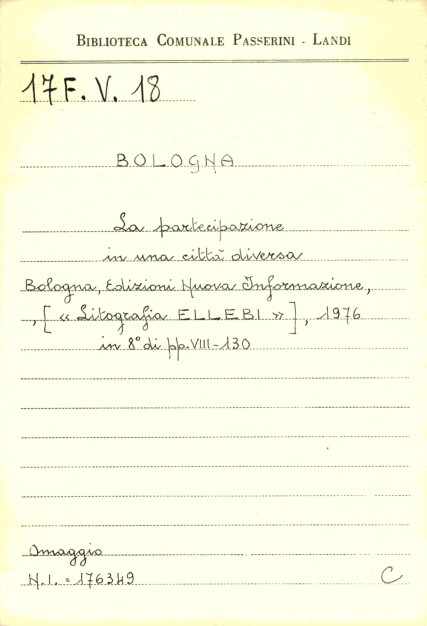 BIBLIOTECA COMUNALE PASSERINI - LANDI
17 F. V. 18
BOLOGNA
La partecipazione
in una città diversa
Bologna, Edizioni Nuova Informazione,
, [ « Litografia ELLEBI » ] , 1976
in 8° di pp. VIII-130
Omaggio
N.I. = 176349
C